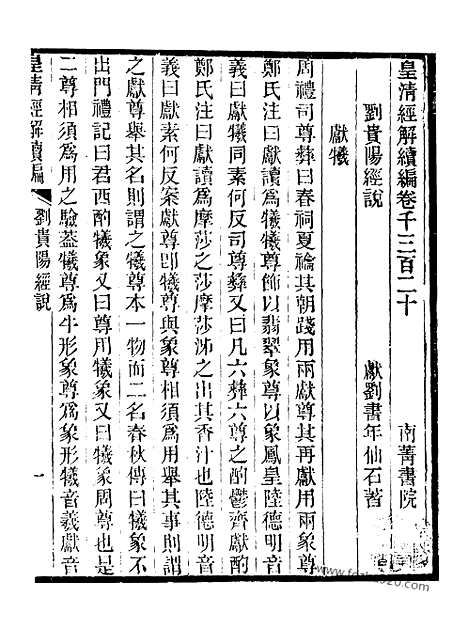 皇清經解續編卷千三百二十
南菁書院
劉貴陽經說
獻劉書年仙石著
獻犧
周禮司尊彝曰春祠夏禴其朝踐用兩獻尊其再獻用兩象尊
鄭氏注曰獻讀爲犧犧尊飾以翡翠象尊以象鳳皇陸德明音
義曰獻犧同素何反司尊彝又曰凡六彝六尊之酌鬱齊獻酌
鄭氏注曰獻讀爲摩莎之莎摩莎泲之出其香汁也陸德明音
義曰獻素何反案獻尊卽犧尊與象尊相須爲用舉其事則謂
之獻尊舉其名則謂之犧尊本一物而二名春秋傳曰犧象不
出門禮記曰君西酌犧象又曰尊用犧象周尊也是
二尊相須爲用之驗葢犧尊爲牛形象尊爲象形犧音羲獻音
皇清經解續編
劉貴陽經說
一